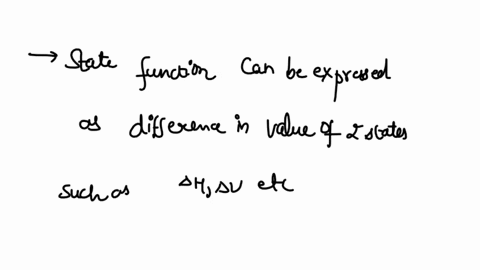 → State function can be expressed
as difference in value of 2 states
such as ΔH, ΔU etc